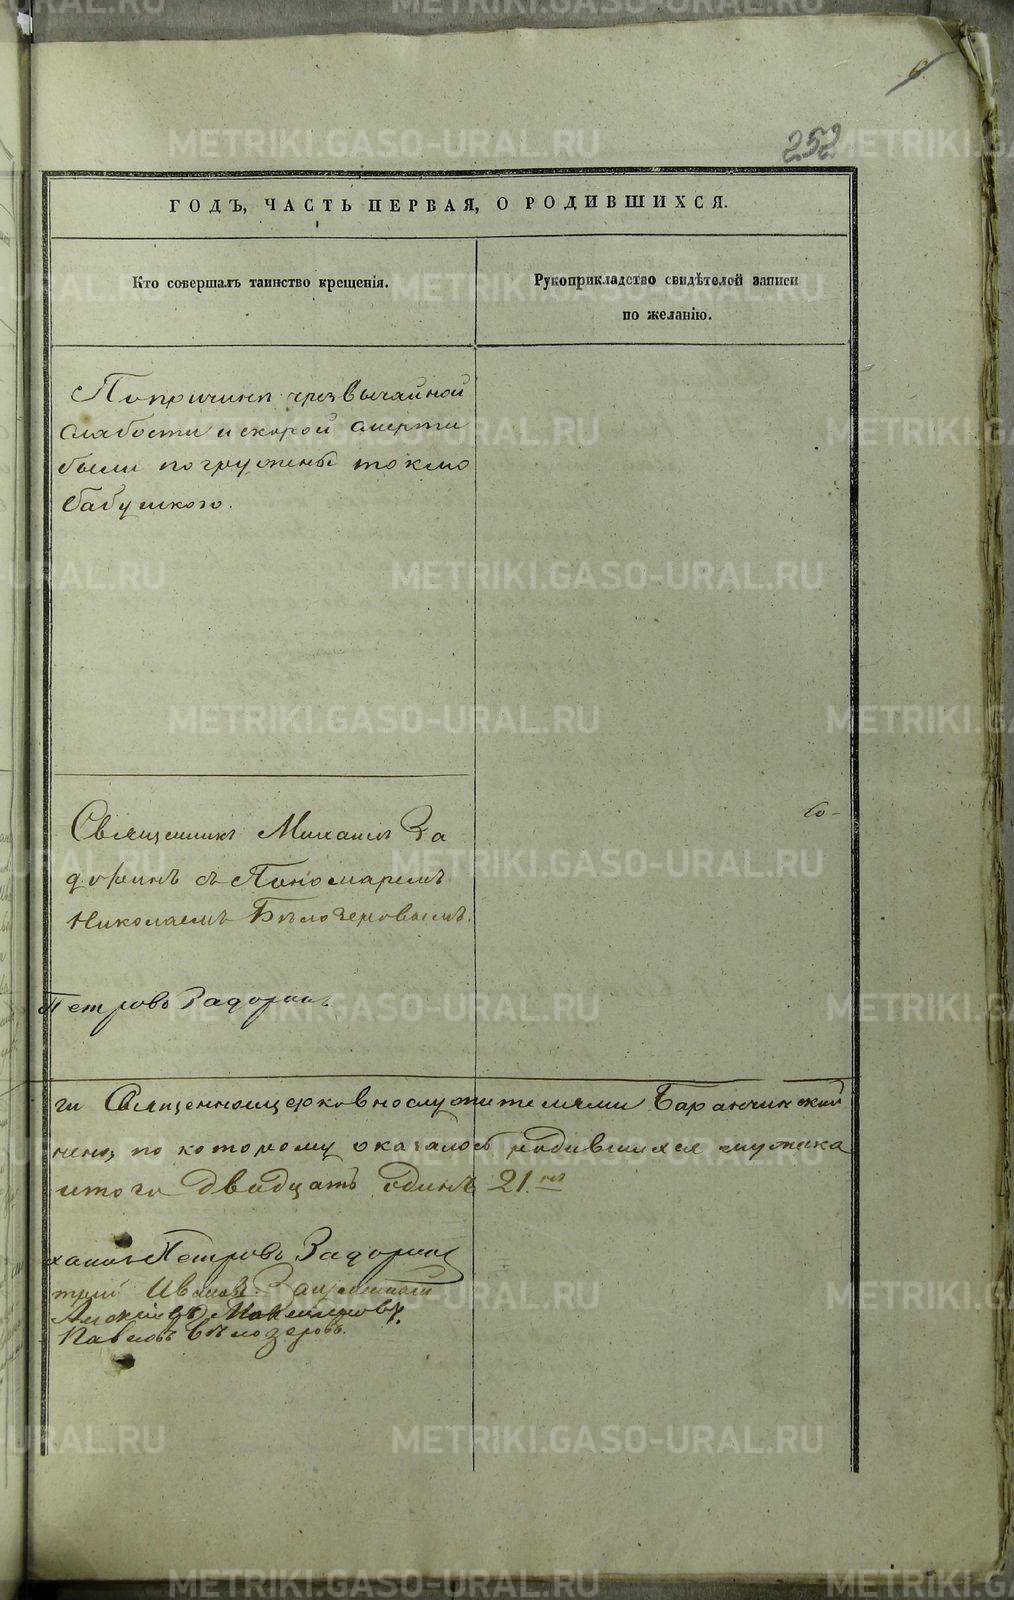 6
252
ГОДЪ, ЧАСТЬ ПЕРВАЯ, О РОДИВШИХСЯ.
Кто совершалъ таинство крещенія.
Рукоприкладство свидѣтелей записи
по желанію.
По причинѣ чрезвычайной
слабости и скорой смерти
были погружены токмо
бабушкою.
Священникъ Михаилъ За
доринъ съ Пономаремъ
Николаемъ Бѣлозеровымъ.
со-
Петровъ Задоринъ
ги Священноцерковнослужителями Баранчинской
по которому оказалось родившихся мужска
итого двадцать одинъ 21.
хаилъ Петровъ Задоринъ
трій Ивановъ
Алексѣй
Павловъ Бѣлозеровъ.
METRIKI.GASO-URAL.RU